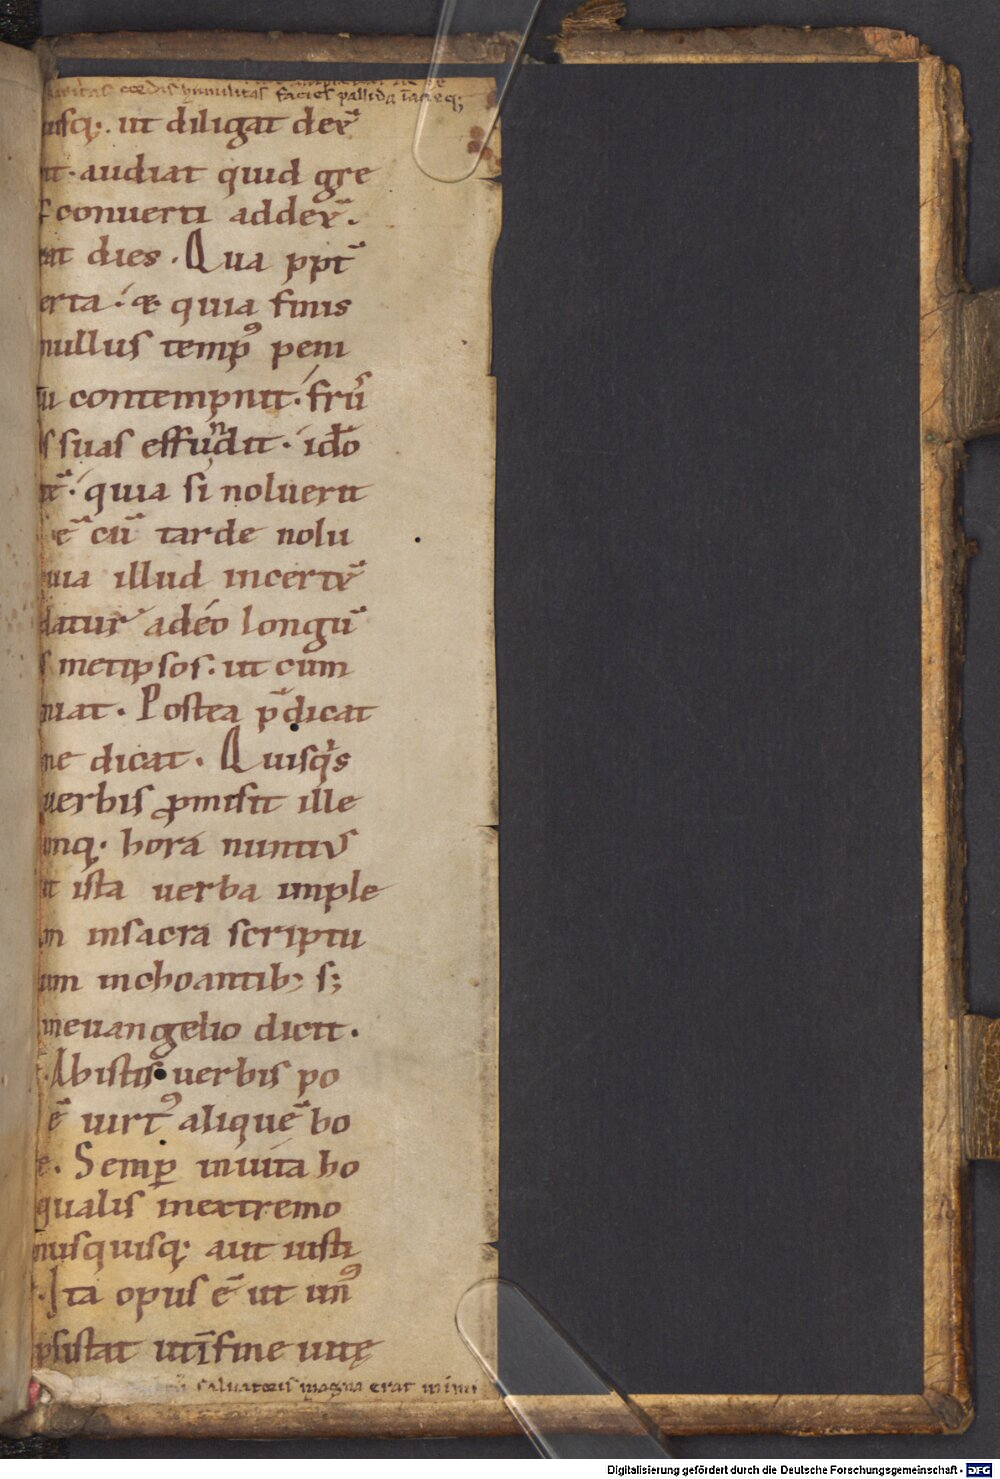 caritas cordis humilitas faciei pallida
uisq;. ut diligat dex̄
it· audiat quid gre
ſ conuerti addex̄.
rat dies . Qua ppt̄
erta · & quia finis
nullus temp⁹ peni
tu contempnit· frū
ſ suas effundit · ido
quia si noluerit
ē cū tarde nolu
uia illud incertē
datur adeo longū
ſ metipsos· ut cum
niat . Postea p̄dicat
ne dicat . Quisq̇s
uerbis ꝓmisit ille
nq; hora nuntiꝰ
it ista uerba imple
in insacra scriptu
um inchoantib; s;
ineuangelio dicit .
Abistis uerbis po
ē uirt⁹ aliquē bo
e. Semꝑ inuita ho
qualis inextremo
nusquisq; aut iusti
. Ita opus ē ut un⁹
psistat utīfine uitę
saluatoris magna erat
Digitalisierung gefördert durch die Deutsche Forschungsgemeinschaft - DFG